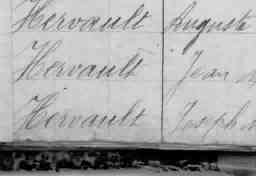 Hervault Auguste
Hervault Jean
Hervault Joseph